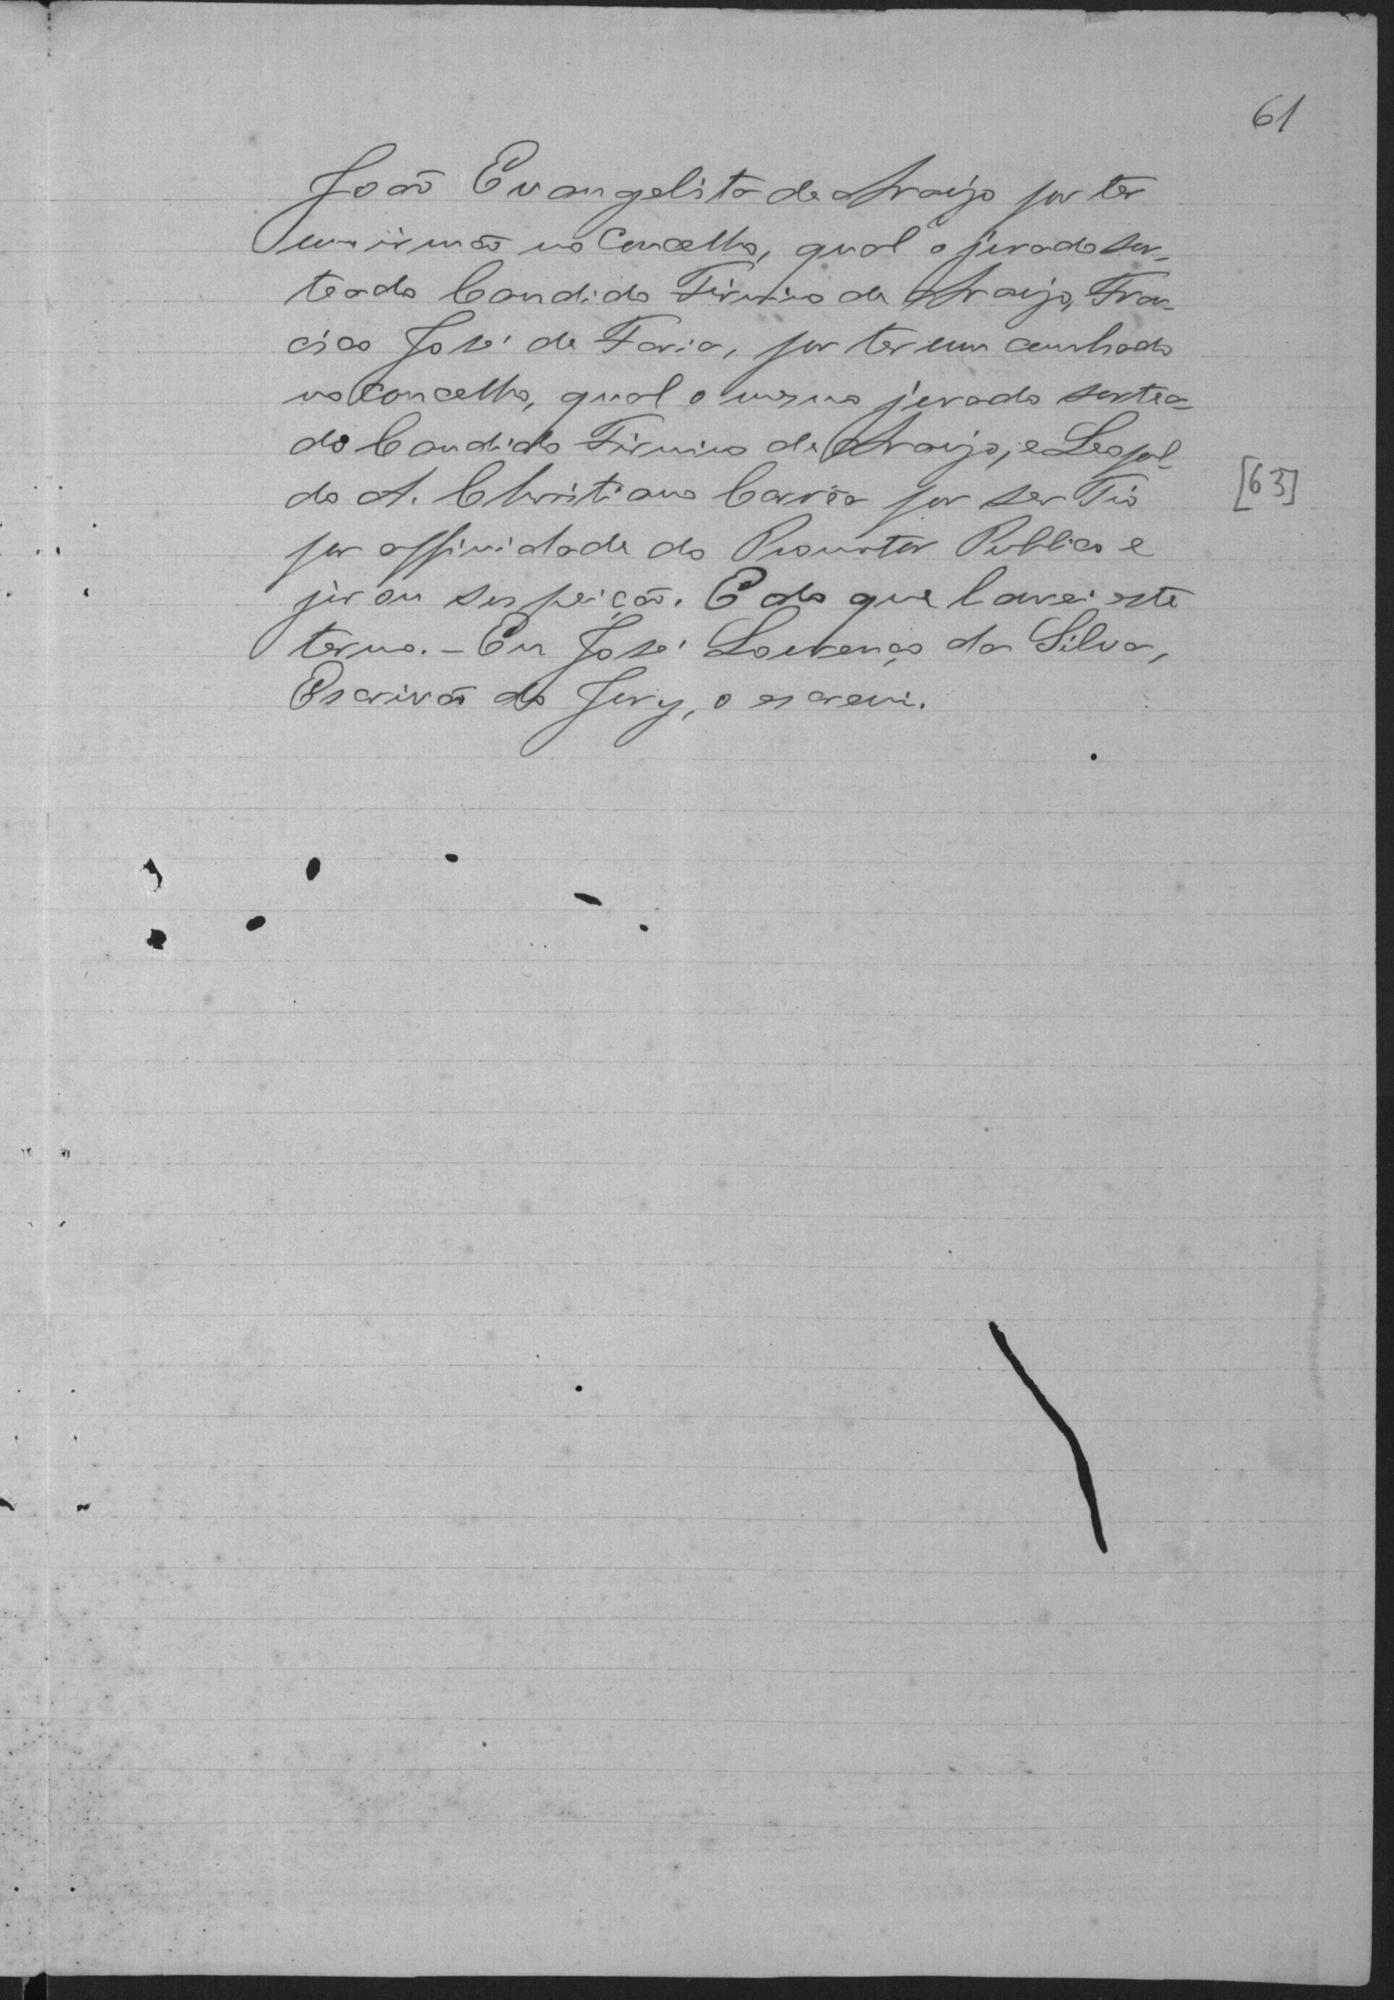 61
João Evangelista de Araujo por ter
um irmão no Concelho, qual o jurado sor-
teado Candido Firmino de Araujo, Fran-
cisco José de Faria, por ter um cunhado
no Concelho, qual o mesmo jurado sortea-
do Candido Firmino de Araujo, e Leopol-
do A. Christiano Corrêa por ser Tio
[63]
por affinidade do Promotor Publico e
jurou suspeição. E do que lavrei este
termo. - Eu José Lourenço da Silva,
Escrivão do Jury, o escrevi.